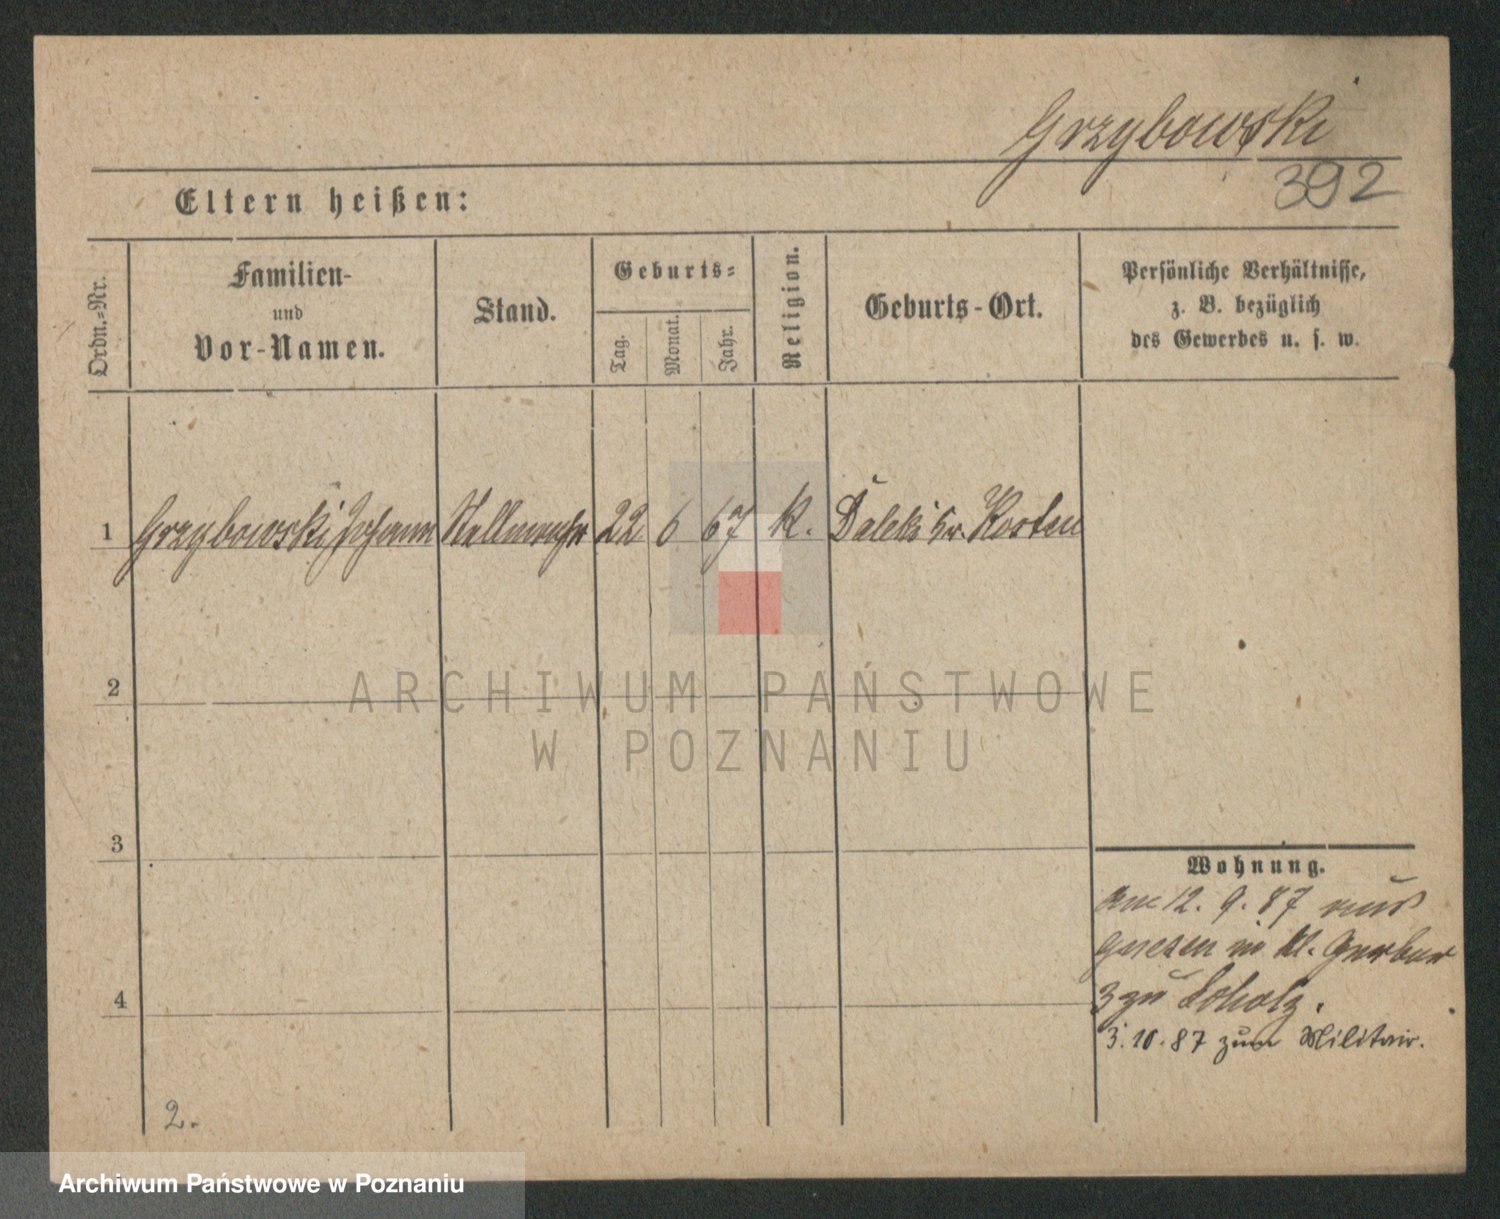 Grzybowski
392
Eltern heißen:
Ordn.-Nr.
Familien-
und
Vor-Namen.
Stand.
Geburts-
Tag.
Monat.
Jahr.
Religion.
Geburts-Ort.
Persönliche Verhältnisse,
z. B. bezüglich
des Gewerbes u. s. w.
1 Grzybowski Johann Stellmacher 22 6 67 K. Daleki Kr. Kosten
2
ARCHIWUM PAŃSTWOWE
W POZNANIU
3
Wohnung.
am 12. 9. 87
in kl. Gerber
3 zu
4
3. 10. 87 zum Militair.
2.
Archiwum Państwowe w Poznaniu